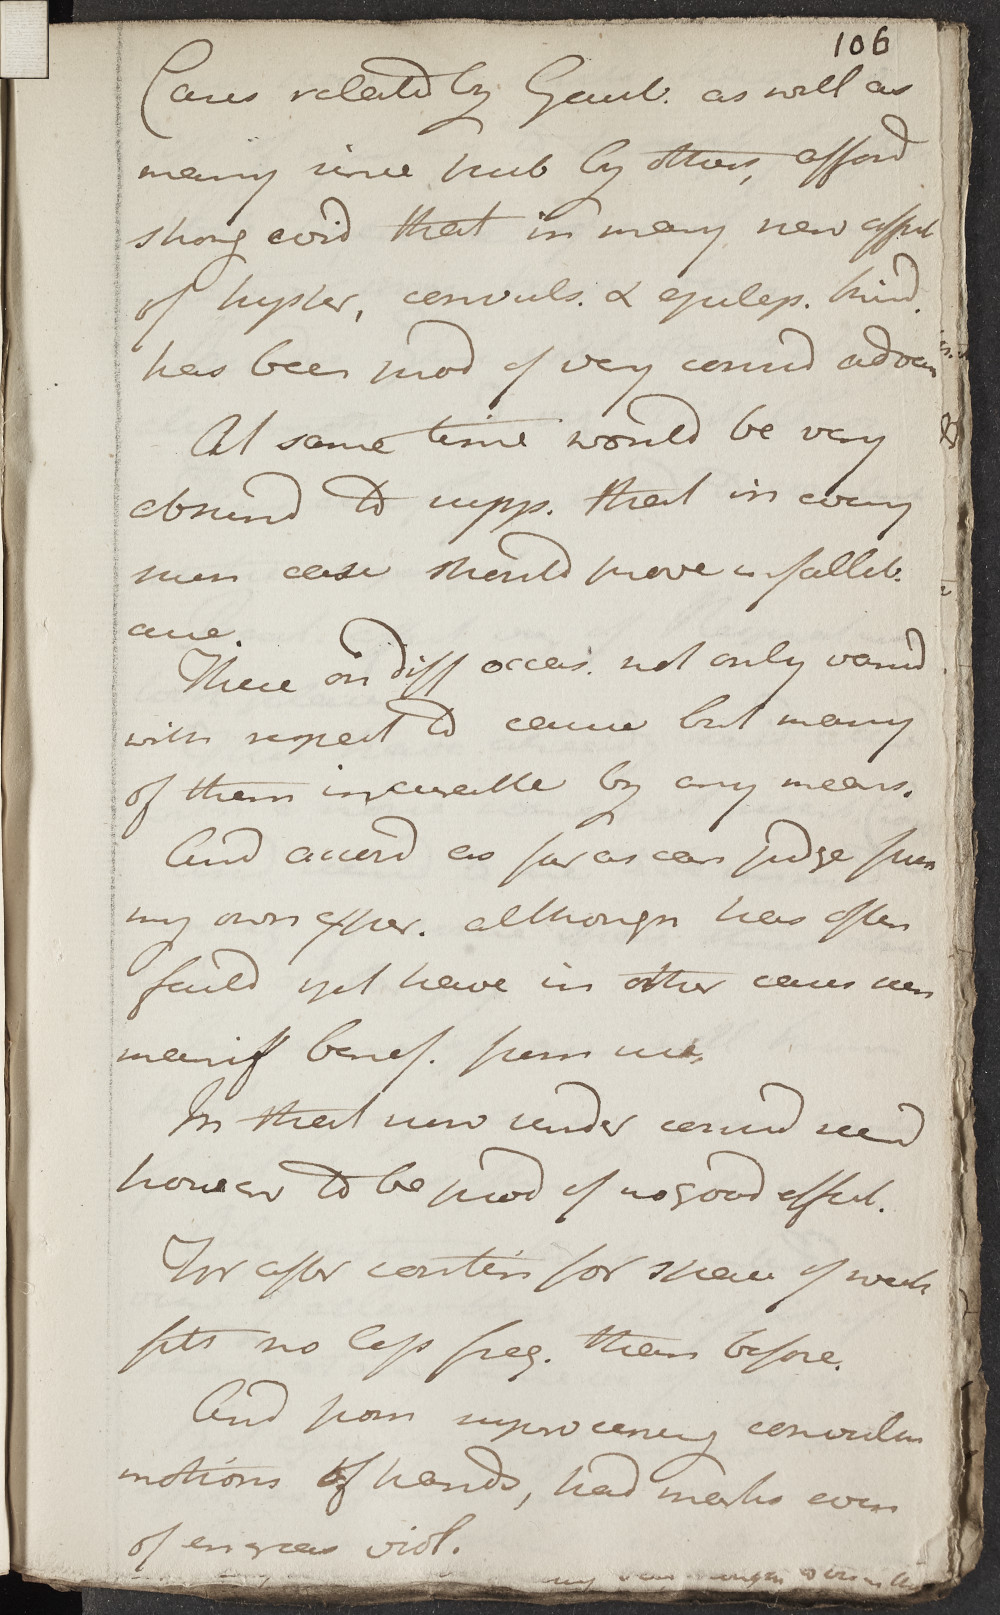 106
Cases related by Gaub. as well as
many since pub by others, afford
strong evid that in many nerv affect
of hyster, convuls. & epilep. kind.
has been prod of very consid advan
At same time would be very
absurd to supp. that in every
such case should prove infallib.
cure.
These on diff occas. not only varied
with respect to cause but many
of them incurable by any means.
And accord as far as can judge from
my own exper. although has often
faild yet have in other cases seen
manif benef. from use
In that now under consid seemd
however to be prod of no good effect.
For after contin for space of week
fits no less freq. than before.
And from convulsive
motions of hands, had marks even
of increas viol.